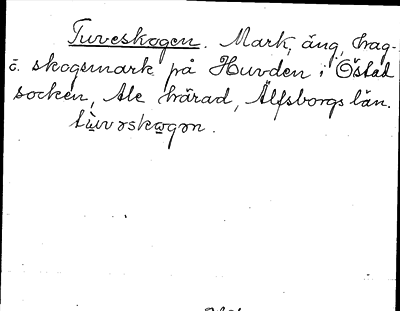 Tuveskogen. Mark, äng, hag-
o. skogsmark på Huvden i Östad
socken, Ale härad, Älfsborgs län.
tùvɘskꭤgɘn.